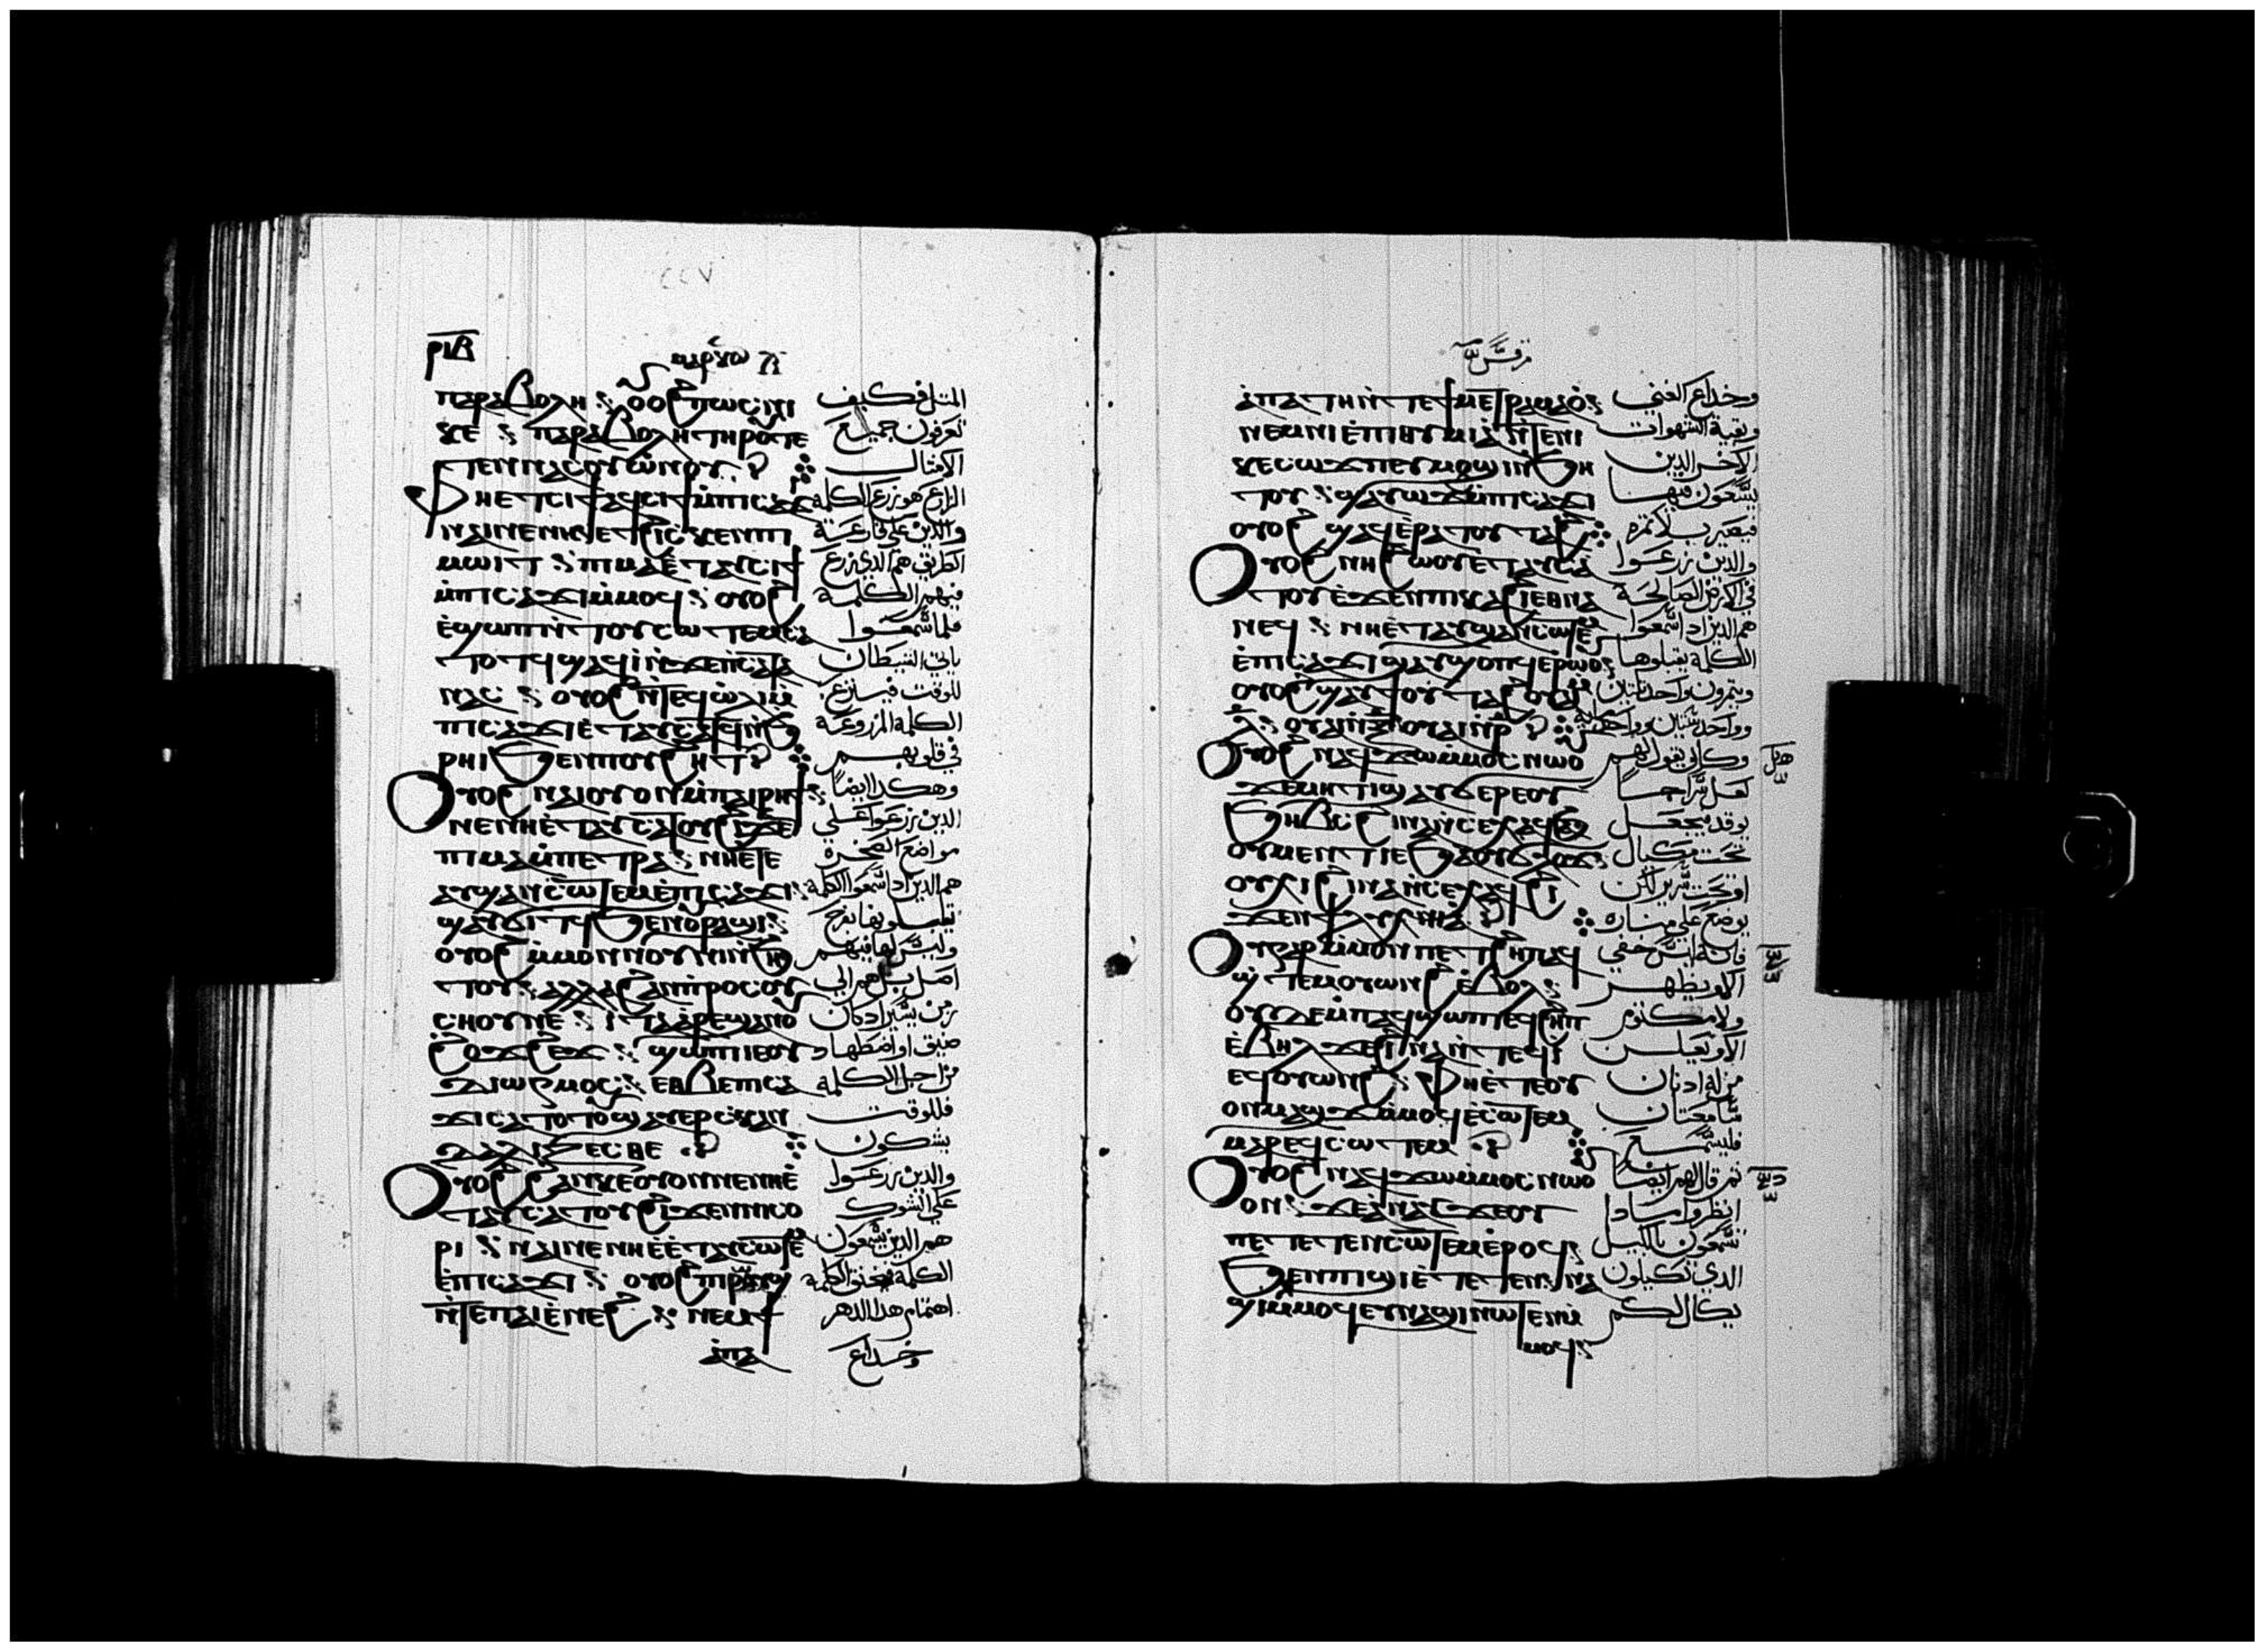 ⲣⲓⲃ
ⲡⲁⲣⲁⲃⲟⲗⲏ ⲟⲩⲟϩ ⲡⲱⲥ ⲛⲓ
ⲕⲉ ⲡⲁⲣⲁⲃⲟⲗⲏ ⲧⲏⲣⲟⲩ ⲧⲉ
ⲧⲉⲛⲛⲁⲥⲟⲩⲱⲛⲟⲩ
ⲫⲏⲉⲧⲥⲓϯ ⲁϥⲥⲓϯ ⲙ̀ⲡⲓⲥⲁϫⲓ
ⲛⲁⲓ ⲛⲉ ⲛⲏⲉⲧϩⲓⲥⲕⲉⲛ ⲡⲓ
ⲙⲱⲓⲧ ⲡⲙⲁ ⲉ̀ⲧⲁⲩⲥⲓϯ
ⲙ̀ⲡⲓⲥⲁϫⲓ ⲙ̀ⲙⲟϥ ⲟⲩⲟϩ
ⲉ̀ϣⲱⲡ ⲛ̀ⲧⲟⲩⲥⲱⲧⲉⲙ ⲥⲁ
ⲧⲟⲧϥ ϣⲁϥⲓ̀ ⲛ̀ϫⲉ ⲡⲥⲁⲧⲁ
ⲛⲁⲥ ⲟⲩⲟϩ ⲛ̀ⲧⲉϥⲱ̀ⲗⲓ ⲙ̀
ⲡⲓⲥⲁϫⲓ ⲉ̀ⲧⲁⲩⲥⲁⲧϥ ⲛ̀ϧ
ⲣⲏⲓ ϧⲉⲛ ⲡⲟⲩϩⲏⲧ
ⲟⲩⲟϩ ⲛⲁⲓ ⲟⲩⲟⲛ ⲙ̀ⲡⲁⲓⲣⲏϯ
ⲛⲉ ⲛⲏⲉ̀ⲧⲁⲩⲥⲁⲧⲟⲩ ϩⲓϫⲉⲛ
ⲡⲓⲙⲁ ⲙ̀ⲡⲉⲧⲣⲁ ⲛⲏⲉⲧⲉ
ⲁⲩϣⲁⲛⲥⲱⲧⲉⲙ ⲉ̀ⲡⲓⲥⲁϫⲓ
ϣⲁⲩϭⲓⲧϥ ϧⲉⲛ ⲟⲩⲣⲁϣⲓ
ⲟⲩⲟϩ ⲙ̀ⲙⲟⲛ ⲛⲟⲩⲛⲓ ⲛ̀ϧⲏ
ⲧⲟⲩ ⲁⲗⲗⲁ ϩⲁⲛⲡⲣⲟⲥ ⲟⲩ
ⲥⲏⲟⲩ ⲛⲉ ⲓⲧⲁ ⲁⲣⲉϣⲁⲛ ⲟⲩ
ϩⲟϫϩⲉϫ ϣⲱⲡⲓ ⲓⲉ ⲟⲩ
ⲇⲓⲱⲅⲙⲟⲥ ⲉⲑⲃⲉ ⲡⲓⲥⲁ
ϫⲓ ⲥⲁⲧⲟⲧⲟⲩ ϣⲁⲩⲉⲣⲥⲕⲁⲛ
ⲇⲁⲗⲓⲍⲉⲥⲑⲉ
ⲟⲩⲟϩ ϩⲁⲛⲕⲉⲟⲩⲟⲛ ⲛⲉ ⲛⲏⲉ̀
ⲧⲁⲩⲥⲁⲧⲟⲩ ϩⲓϫⲉⲛ ⲛⲓⲥⲟⲩ
ⲣⲓ ⲛⲁⲓ ⲛⲉ ⲛⲏⲉ̀ⲧⲁⲩⲥⲱⲧⲉⲙ
ⲉ̀ⲡⲓⲥⲁϫⲓ ⲟⲩⲟϩ ⲡⲓⲣⲱⲟⲩϣ
ⲛ̀ⲧⲉ ⲡⲁⲓⲉ̀ⲛⲉϩ ⲛⲉⲙ ϯ
ⲁ̀ⲡⲁ
المثل فكيف
تعرفون جميع
الامثال
الزارع هو زرع الكلمة
والذين على قارعة
الطريق هم الذي زرع
فيهم الكلمة
فلما سمعوا
ياتي الشيطان
للوقت فينزع
الكلمة المزروعة
في قلوبهم
وهكذا ايضا
الذين زرعوا على
مواضع الصخرة
هم الذين اذا سمعوا الكلمة
تقبلوها بفرح
وليس لها فيهم
اصل بل هم الى
زمن يسير اذا كان
ضيق او اضطهاد
من اجل الكلمة
فللوقت
يشكون
والذين زرعوا
على الشوك
هم الذين يسمعون
الكلمة فيخنق الكلمة
اهتمام هذا الدهر
وخداع
مرقس
ⲁ̀ⲡⲁⲧⲏ ⲛ̀ⲧⲉ ϯⲙⲉⲧⲣⲁⲙⲁⲟ̀
ⲛⲉⲙ ⲛⲓⲉ̀ⲡⲓⲑⲩⲙⲓⲁ ⲛ̀ⲧⲉ ⲛⲓ
ⲕⲉⲥⲱϫⲡ ⲉⲩⲙⲟϣⲓ ⲛ̀ϧⲏ
ⲧⲟⲩ ϣⲁⲩⲱϫϩ ⲙ̀ⲡⲓⲥⲁϫⲓ
ⲟⲩⲟϩ ϣⲁϥⲉⲣⲁⲧⲟⲩⲧⲁϩ
ⲟⲩⲟϩ ⲛⲏ ϩⲱⲟⲩ ⲉⲧⲁⲩⲥⲁ
ⲧⲟⲩ ⲉ̀ϫⲉⲛ ⲡⲓⲕⲁϩⲓ ⲉⲑⲛⲁ
ⲛⲉϥ ⲛⲏⲉ̀ⲧⲁⲩϣⲁⲛⲥⲱⲧⲉⲙ
ⲉ̀ⲡⲓⲥⲁϫⲓ ϣⲁⲩϣⲟⲡϥ ⲉ̀ⲣⲱⲟⲩ
ⲟⲩⲟϩ ϣⲁⲩϯⲟⲩⲧⲁϩ ⲟⲩⲁⲓ
ⲗ̅ ⲟⲩⲁⲓ ⲛ̀ⲝ̅ ⲟⲩⲁⲓ ⲛ̀ⲣ̅
ⲟⲩⲟϩ ⲛⲁϥϫⲱ ⲙ̀ⲙⲟⲥ ⲛⲱⲟⲩ
ϫⲉ ⲙⲏⲧⲓ ϣⲁⲩϭⲉⲣⲉ ⲟⲩ
ϧⲏⲃⲥ ϩⲓⲛⲁ ⲛ̀ⲥⲉⲭⲁϥ ϧⲁ
ⲟⲩⲙⲉⲛⲧ ⲓⲉ ϧⲁ ⲟⲩϭⲗⲟϫ
ⲟⲩⲭⲓ ϩⲓⲛⲁ ⲛ̀ⲥⲉⲭⲁϥ ϩⲓ
ϫⲉⲛ ϯⲗⲩⲭⲛⲓⲁ
ⲟⲩ ⲅⲁⲣ ⲙ̀ⲙⲟⲛ ⲡⲉⲧϩⲏⲡ ⲁϥ
ϣⲧⲉⲙⲟⲩⲱⲛϩ ⲉ̀ⲃⲟⲗ
ⲟⲩⲇⲉ ⲙ̀ⲡⲁϥϣⲱⲡⲓ ⲉϥϩⲏⲡ
ⲉ̀ⲃⲏⲗ ϫⲉ ϩⲓⲛⲁ ⲛ̀ⲧⲉϥⲓ̀
ⲉϥⲟⲩⲱⲛϩ ⲫⲏⲉ̀ⲧⲉ ⲟⲩ
ⲟⲛ ⲙⲁϣϫ ⲙ̀ⲙⲟϥ ⲉ̀ⲥⲱⲧⲉⲙ
ⲙⲁⲣⲉϥⲥⲱⲧⲉⲙ
ⲟⲩⲟϩ ⲛⲁϥϫⲱ ⲙ̀ⲙⲟⲥ ⲛⲱⲟⲩ
ⲟⲛ ϫⲉ ⲁ̀ⲛⲁⲩ ϫⲉ ⲟⲩ
ⲡⲉⲧⲉⲧⲉⲛⲥⲱⲧⲉⲙ ⲉ̀ⲣⲟϥ
ϧⲉⲛ ⲡⲓϣⲓ ⲉ̀ⲧⲉⲧⲉⲛⲛⲁ
ϣⲓ ⲙ̀ⲙⲟϥ ⲉⲩⲛⲁϣⲓ ⲛⲱⲧⲉⲛ ⲙ̀
ⲙⲟϥ
وخداع الغنى
وبقية الشهوات
الاخر الذين
يسعون فيها
فيصير بلا ثمرة
والذين زرعوا
في الارض الصالحة
هم الذين اذا سمعوا
الكلمة يقبلوها
ويثمرون واحد ثلثين
وواحد ستين وواحد مايه
وكان يقول لهم
لعل سراجا
يوقد فيجعل
تحت مكيال
او تحت سرير لكن
يوضع على مناره
فانه ليس خفي
الا ويظهر
ولا مكتوم
الا ويعلن
من له اذنان
سامعتان
فليسمع
ثم قال لهم ايضا
انظروا ماذا
تسمعون بالكيل
الذي تكيلون
يكال لكم